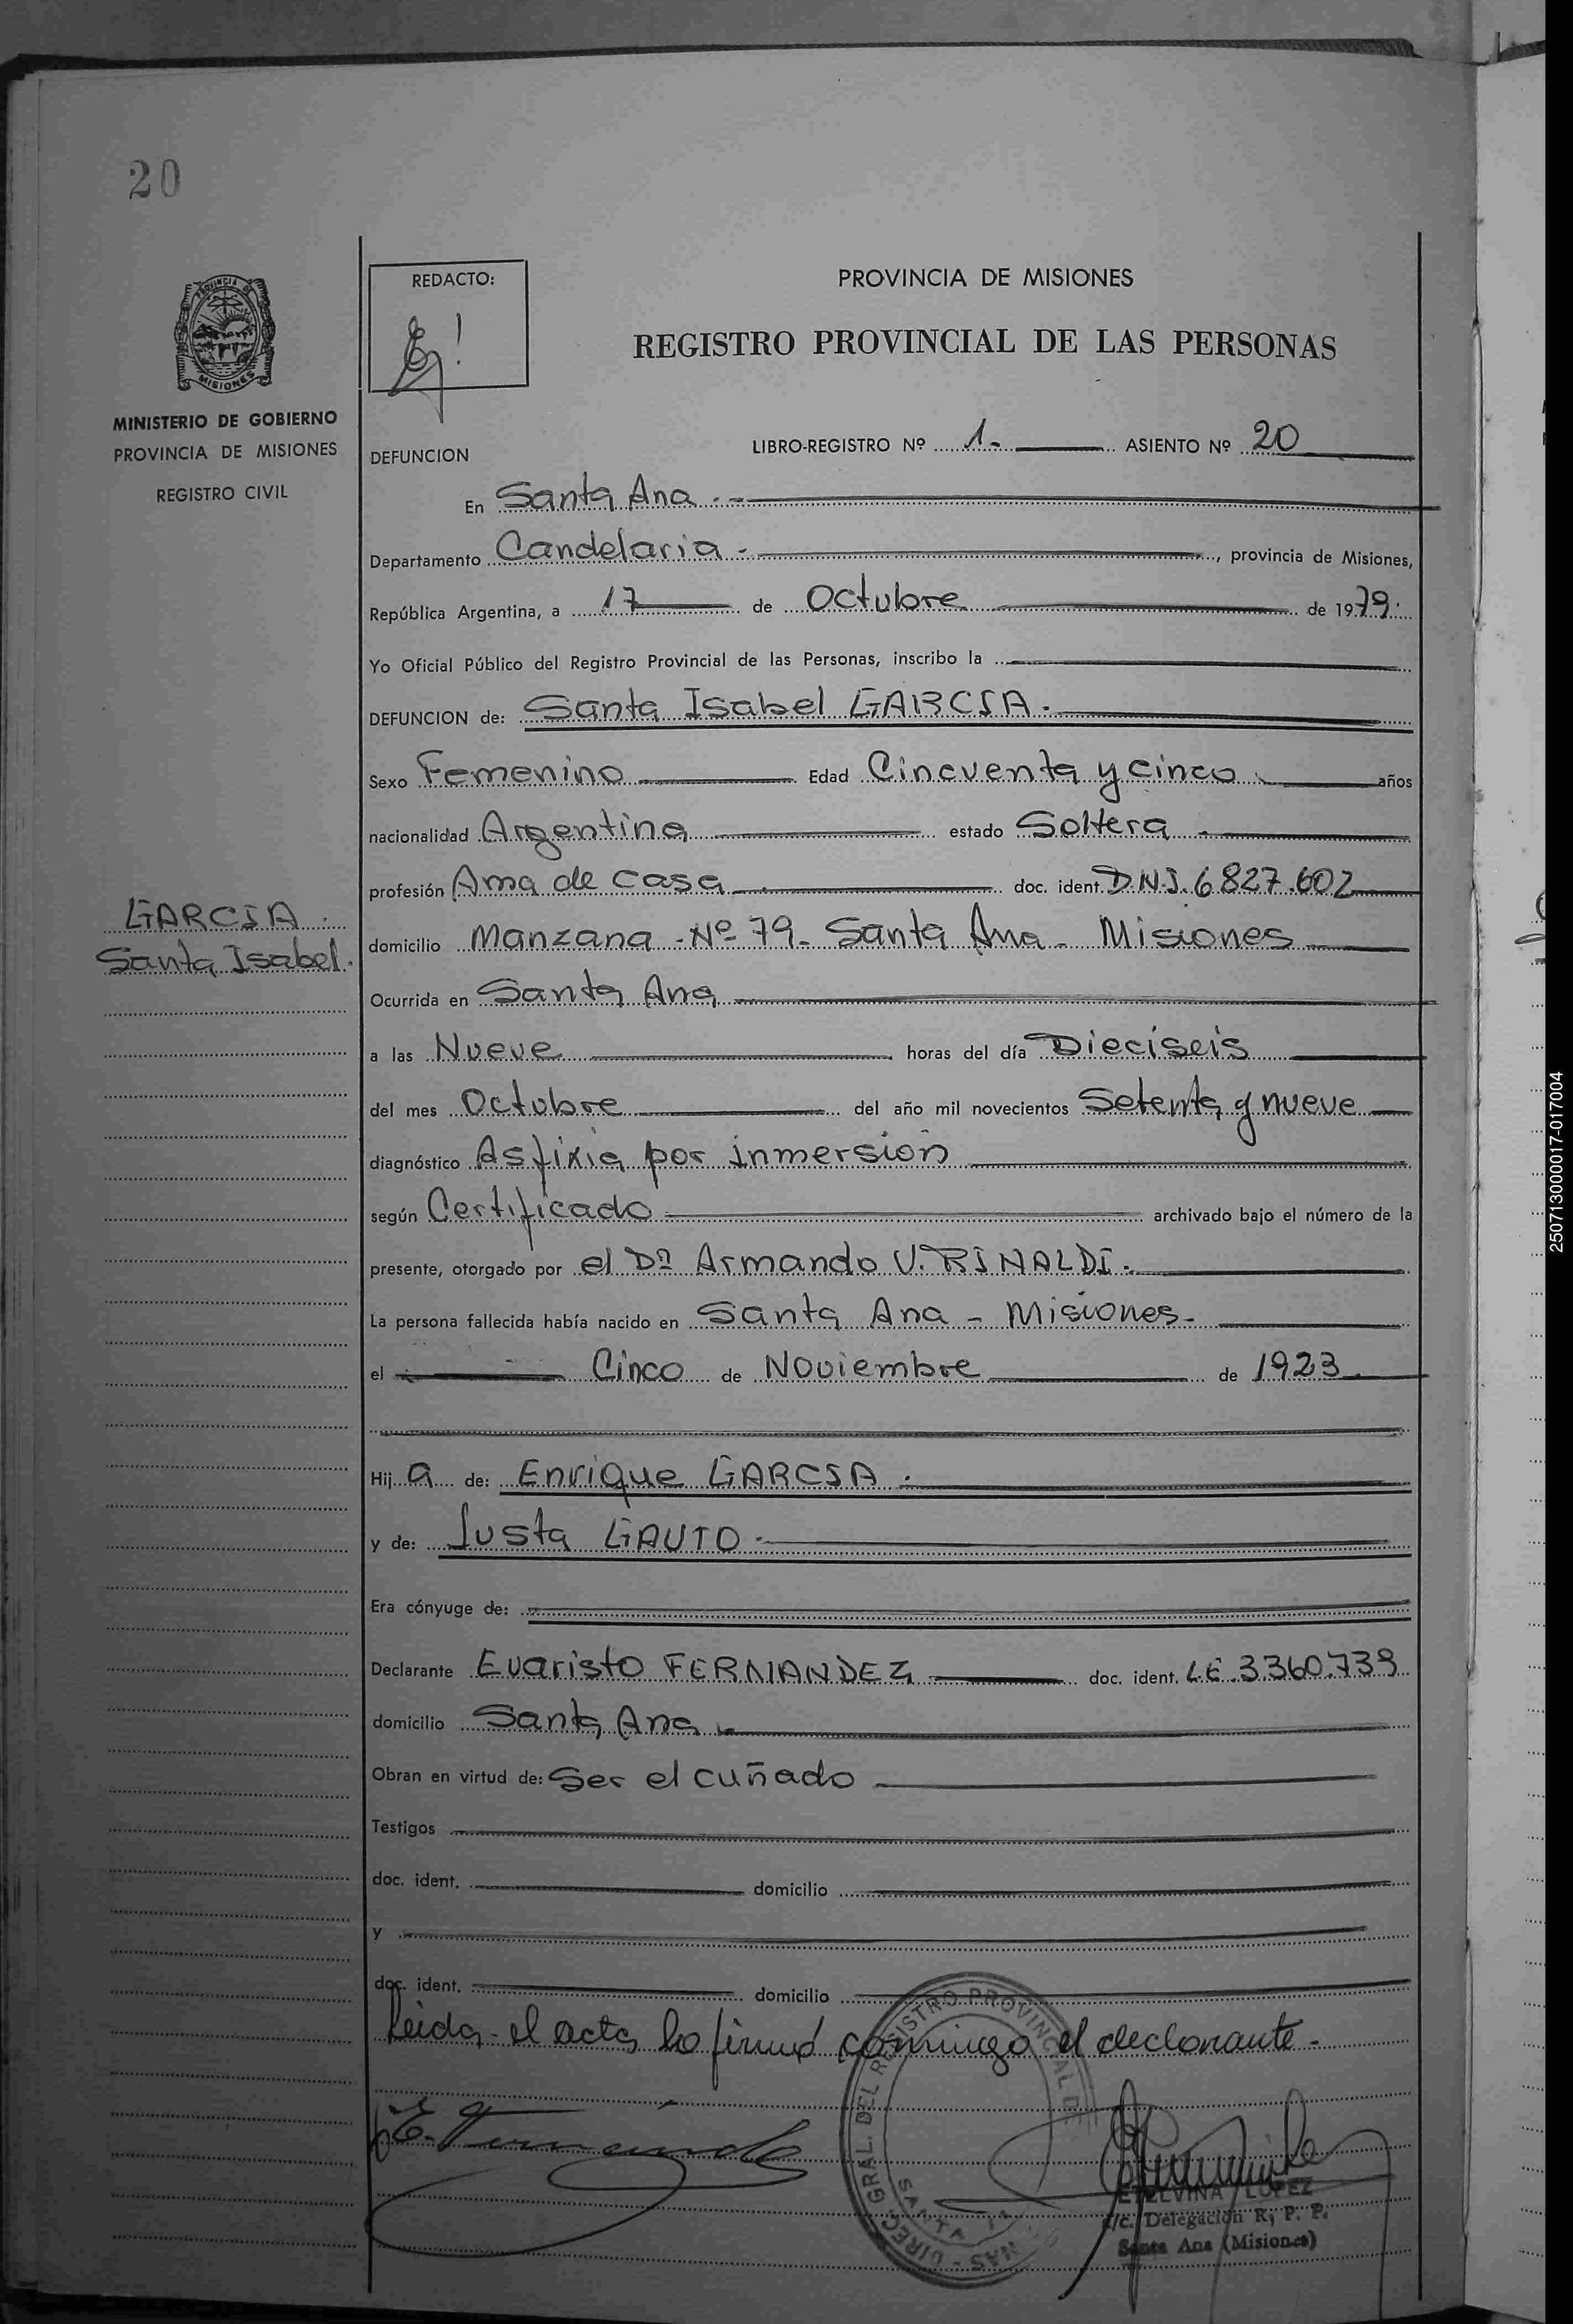 20
REDACTO:
PROVINCIA DE MISIONES
REGISTRO PROVINCIAL DE LAS PERSONAS
PROVINCIA DE
MISIONES
MINISTERIO DE GOBIERNO
PROVINCIA DE MISIONES
REGISTRO CIVIL
DEFUNCION
LIBRO-REGISTRO Nº 1.- ASIENTO Nº 20
En Santa Ana.-
Departamento Candelaria -, provincia de Misiones,
República Argentina, a 17 de Octubre de 1979.
Yo Oficial Público del Registro Provincial de las Personas, inscribo la
DEFUNCION de: Santa Isabel GARCIA.-
Sexo Femenino Edad Cincuenta y cinco años
nacionalidad Argentina estado Soltera
profesión Ama de casa doc. ident. D.N.I. 6827.602
GARCIA
Santa Isabel.
domicilio Manzana - Nº 79 - Santa Ana - Misiones
Ocurrida en Santa Ana
a las Nueve horas del día Dieciseis
del mes Octubre del año mil novecientos Setenta y nueve
diagnóstico Asfixia por inmersion
según Certificado archivado bajo el número de la
presente, otorgado por el Dr Armando V. RINALDI.
La persona fallecida había nacido en Santa Ana - Misiones-
el Cinco de Noviembre de 1923.
Hij a de: Enrique GARCIA.
y de: Justa GAUTO.
Era cónyuge de:
Declarante Evaristo FERNANDEZ doc. ident. L.E 3.360.739
domicilio Santa Ana
Obran en virtud de: Ser el cuñado
Testigos
doc. ident. domicilio
y
doc. ident. domicilio
Leida el acta la firmó conmigo el declarante -
DIREC. GRAL. DEL REGISTRO PROVINCIAL DE
SANTA
E. Fernández
ETELVINA LOPEZ
a/c. Delegación R. P. P.
Santa Ana (Misiones)
250713000017-017004